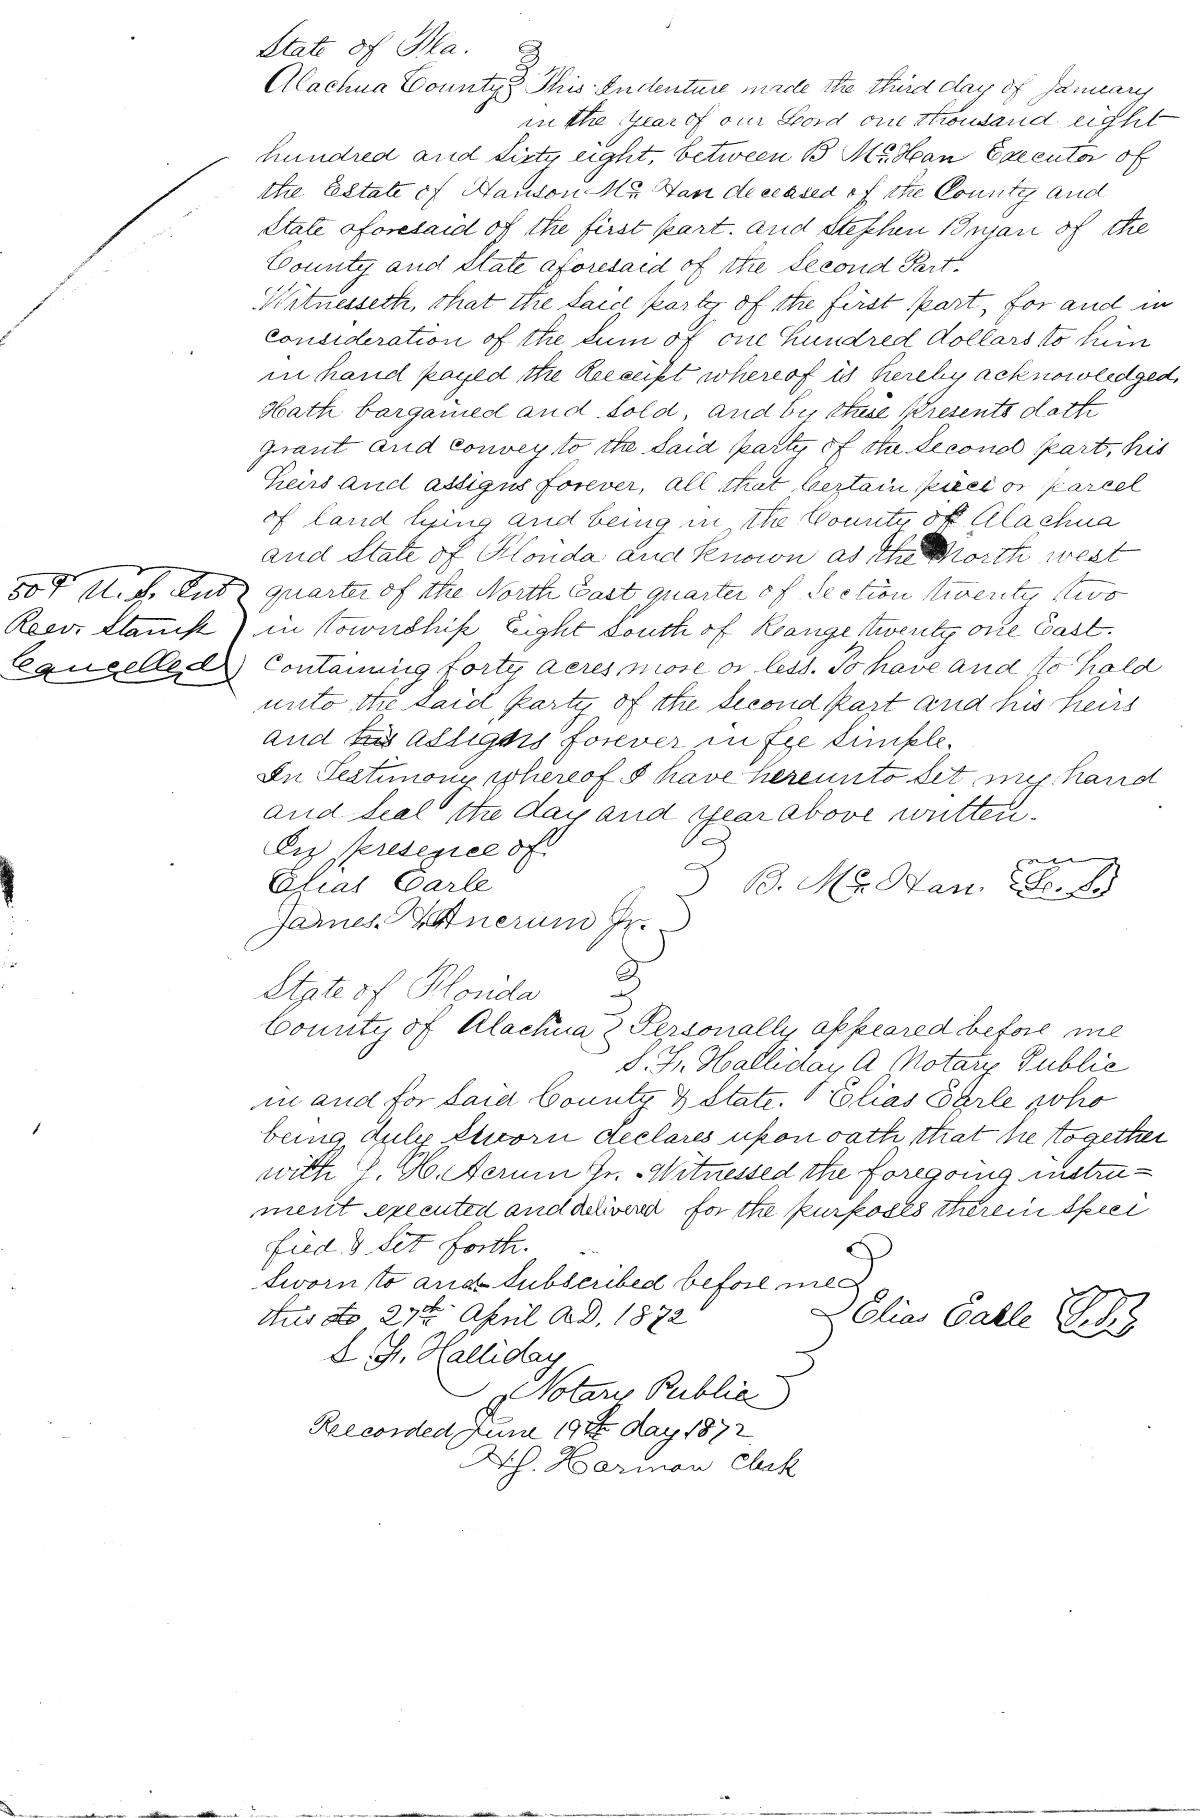 State of Fla.
Alachua County This Indenture made the third day of January
in the year of our Lord one thousand eight
hundred and Sixty eight, between B McHan Executor of
the Estate of Hanson McHan deceased of the County and
State aforesaid of the first part. and Stephen Bryan of the
County and State aforesaid of the Second Part.
Witnesseth, that the Said party of the first part, for and in
consideration of the Sum of one hundred dollars to him
in hand payed the Receipt whereof is hereby acknowledged,
Hath bargained and Sold, and by these presents doth
grant and convey to the Said party of the Second part, his
heirs and assigns forever, all that Certain piece or parcel
of land lying and being in the County of Alachua
and State of Florida and known as the North west
50¢ U.S. Int
quarter of the North East quarter of Section twenty two
Reev. Stamp
in township Eight South of Range twenty one East.
Cancelled
Containing forty acres more or less. To have and to hold
unto the Said party of the Second part and his heirs
and his assigns forever in fee Simple.
In Testimony whereof I have hereunto Set my hand
and Seal the day and year above written.
In presence of
Elias Earle B. McHan. L.S.
James. Jr.
State of Florida
County of Alachua Personally appeared before me
S. F. Halliday A Notary Public
in and for Said County & State. Elias Earle who
being duly Sworn declares upon oath that he together
with J. H. Acrum Jr. Witnessed the foregoing instru=
ment executed and delivered for the purposes therein Speci
fied & Set forth.
Sworn to and Subscribed before me
this 27th April A.D. 1872 Elias Earle L.S.
S. F. Halliday
Notary Public
Reecorded June 19th day 1872
Harmon Clerk